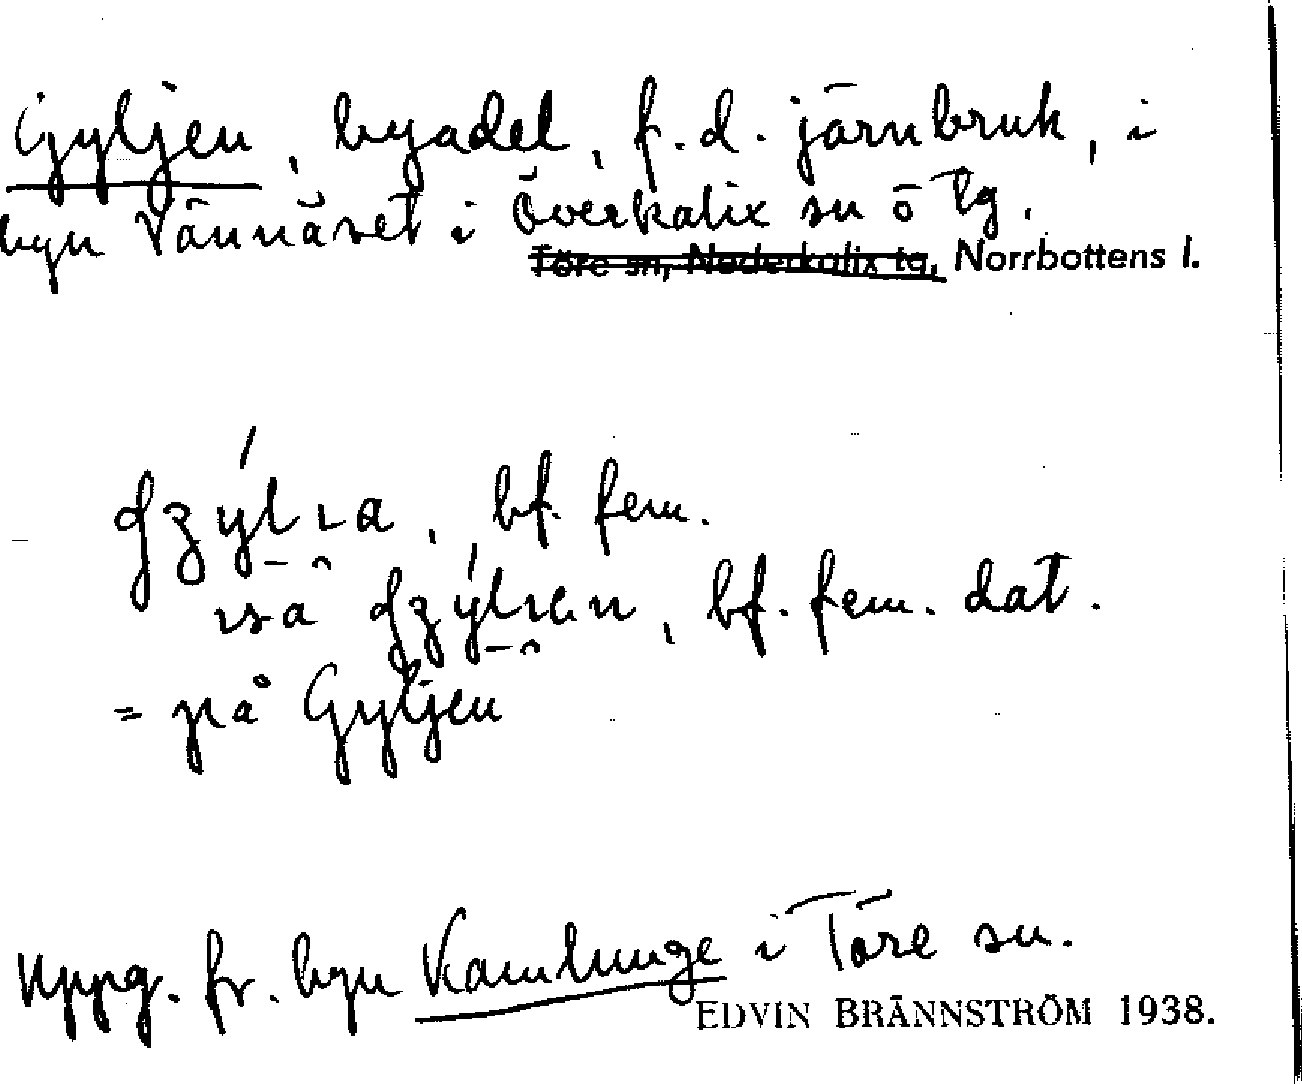 Gyljen, byadel, f.d. järnbruk, i
byn Vännävet i Överkalix sn o tg.
Töre sn, Nederkalix tg, Norrbottens l.
bf. fem.
bf. fem. dat.
= på Gyljen
Uppg. fr. byn Kamlunge i Töre sn.
EDVIN BRÄNNSTRÖM 1938.